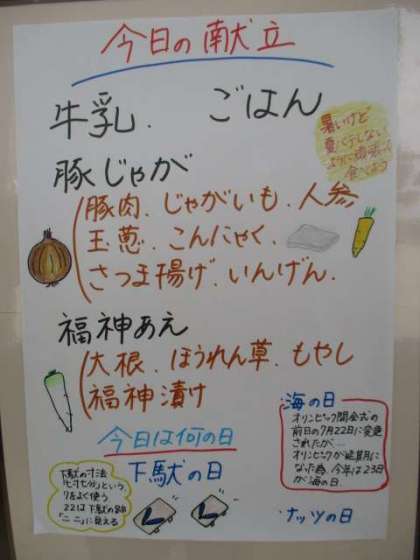 今日の献立
牛乳、ごはん
暑いけど
夏バテしない
ように頑張って
食べよう
豚じゃが
豚肉、じゃがいも、人参
玉葱、こんにゃく、
さつま揚げ、いんげん、
福神あえ
大根、ほうれん草、もやし
福神漬け
今日は何の日
下駄の日
下駄の寸法
「七寸七分」という
7をよく使う
22は下駄の跡
「二 二」に見える
海の日
オリンピック開会式の
前日の7月22日に変更
されたが…
オリンピックが延期に
なった為、今年は23日
が海の日。
ナッツの日